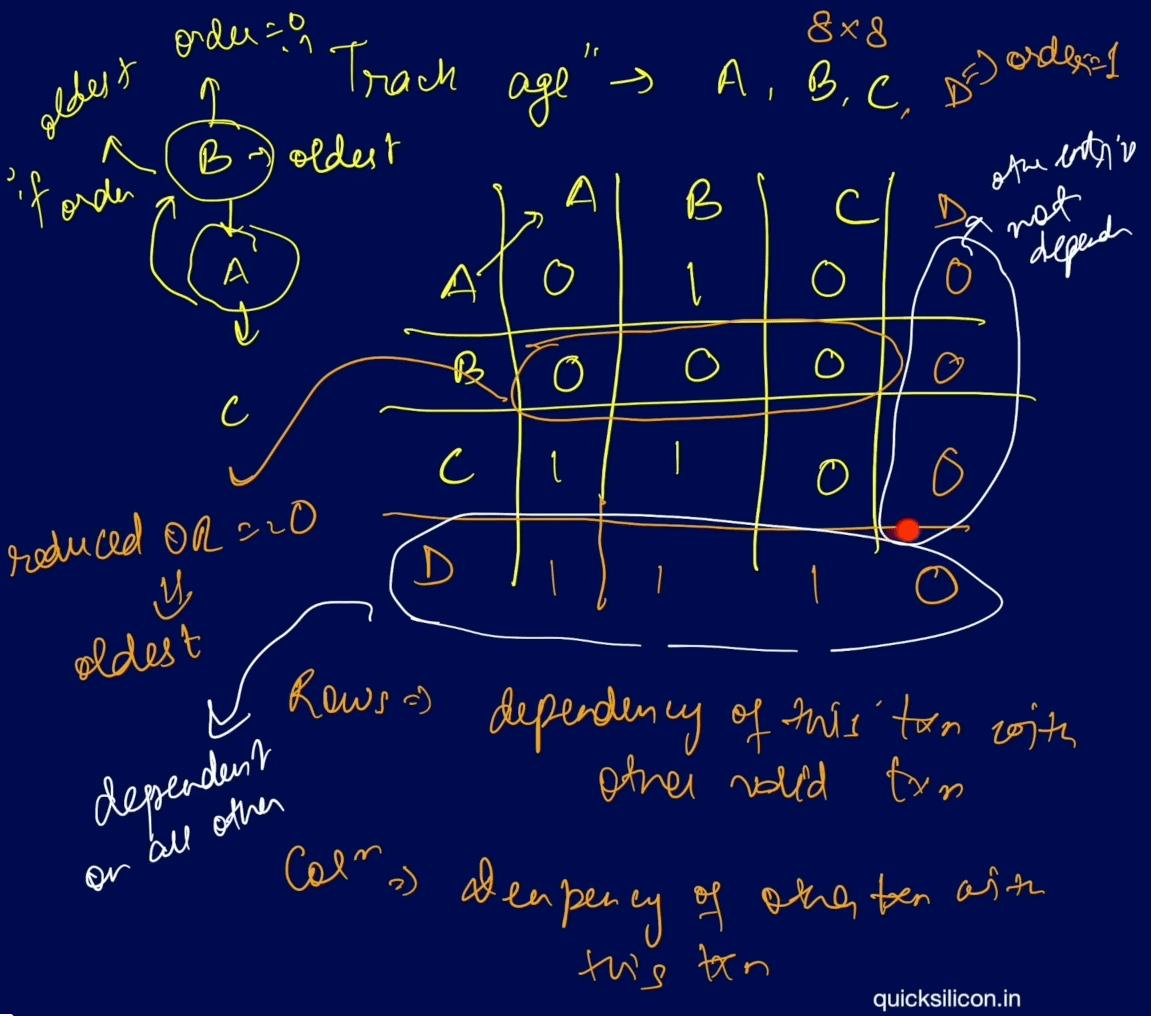 order = 0
8 x 8
oldest
"Track age" → A, B, C, D => order=1
B → oldest
if order
other entries
not
depends
A B C D
A 0 1 0 0
A
B 0 0 0 0
C
C 1 1 0 0
reduced OR == 0
D 1 1 1 0
oldest
Rows => dependency of this txn with
other valid txn
dependent
on all other
Colm => of other txn with
this txn
quicksilicon.in